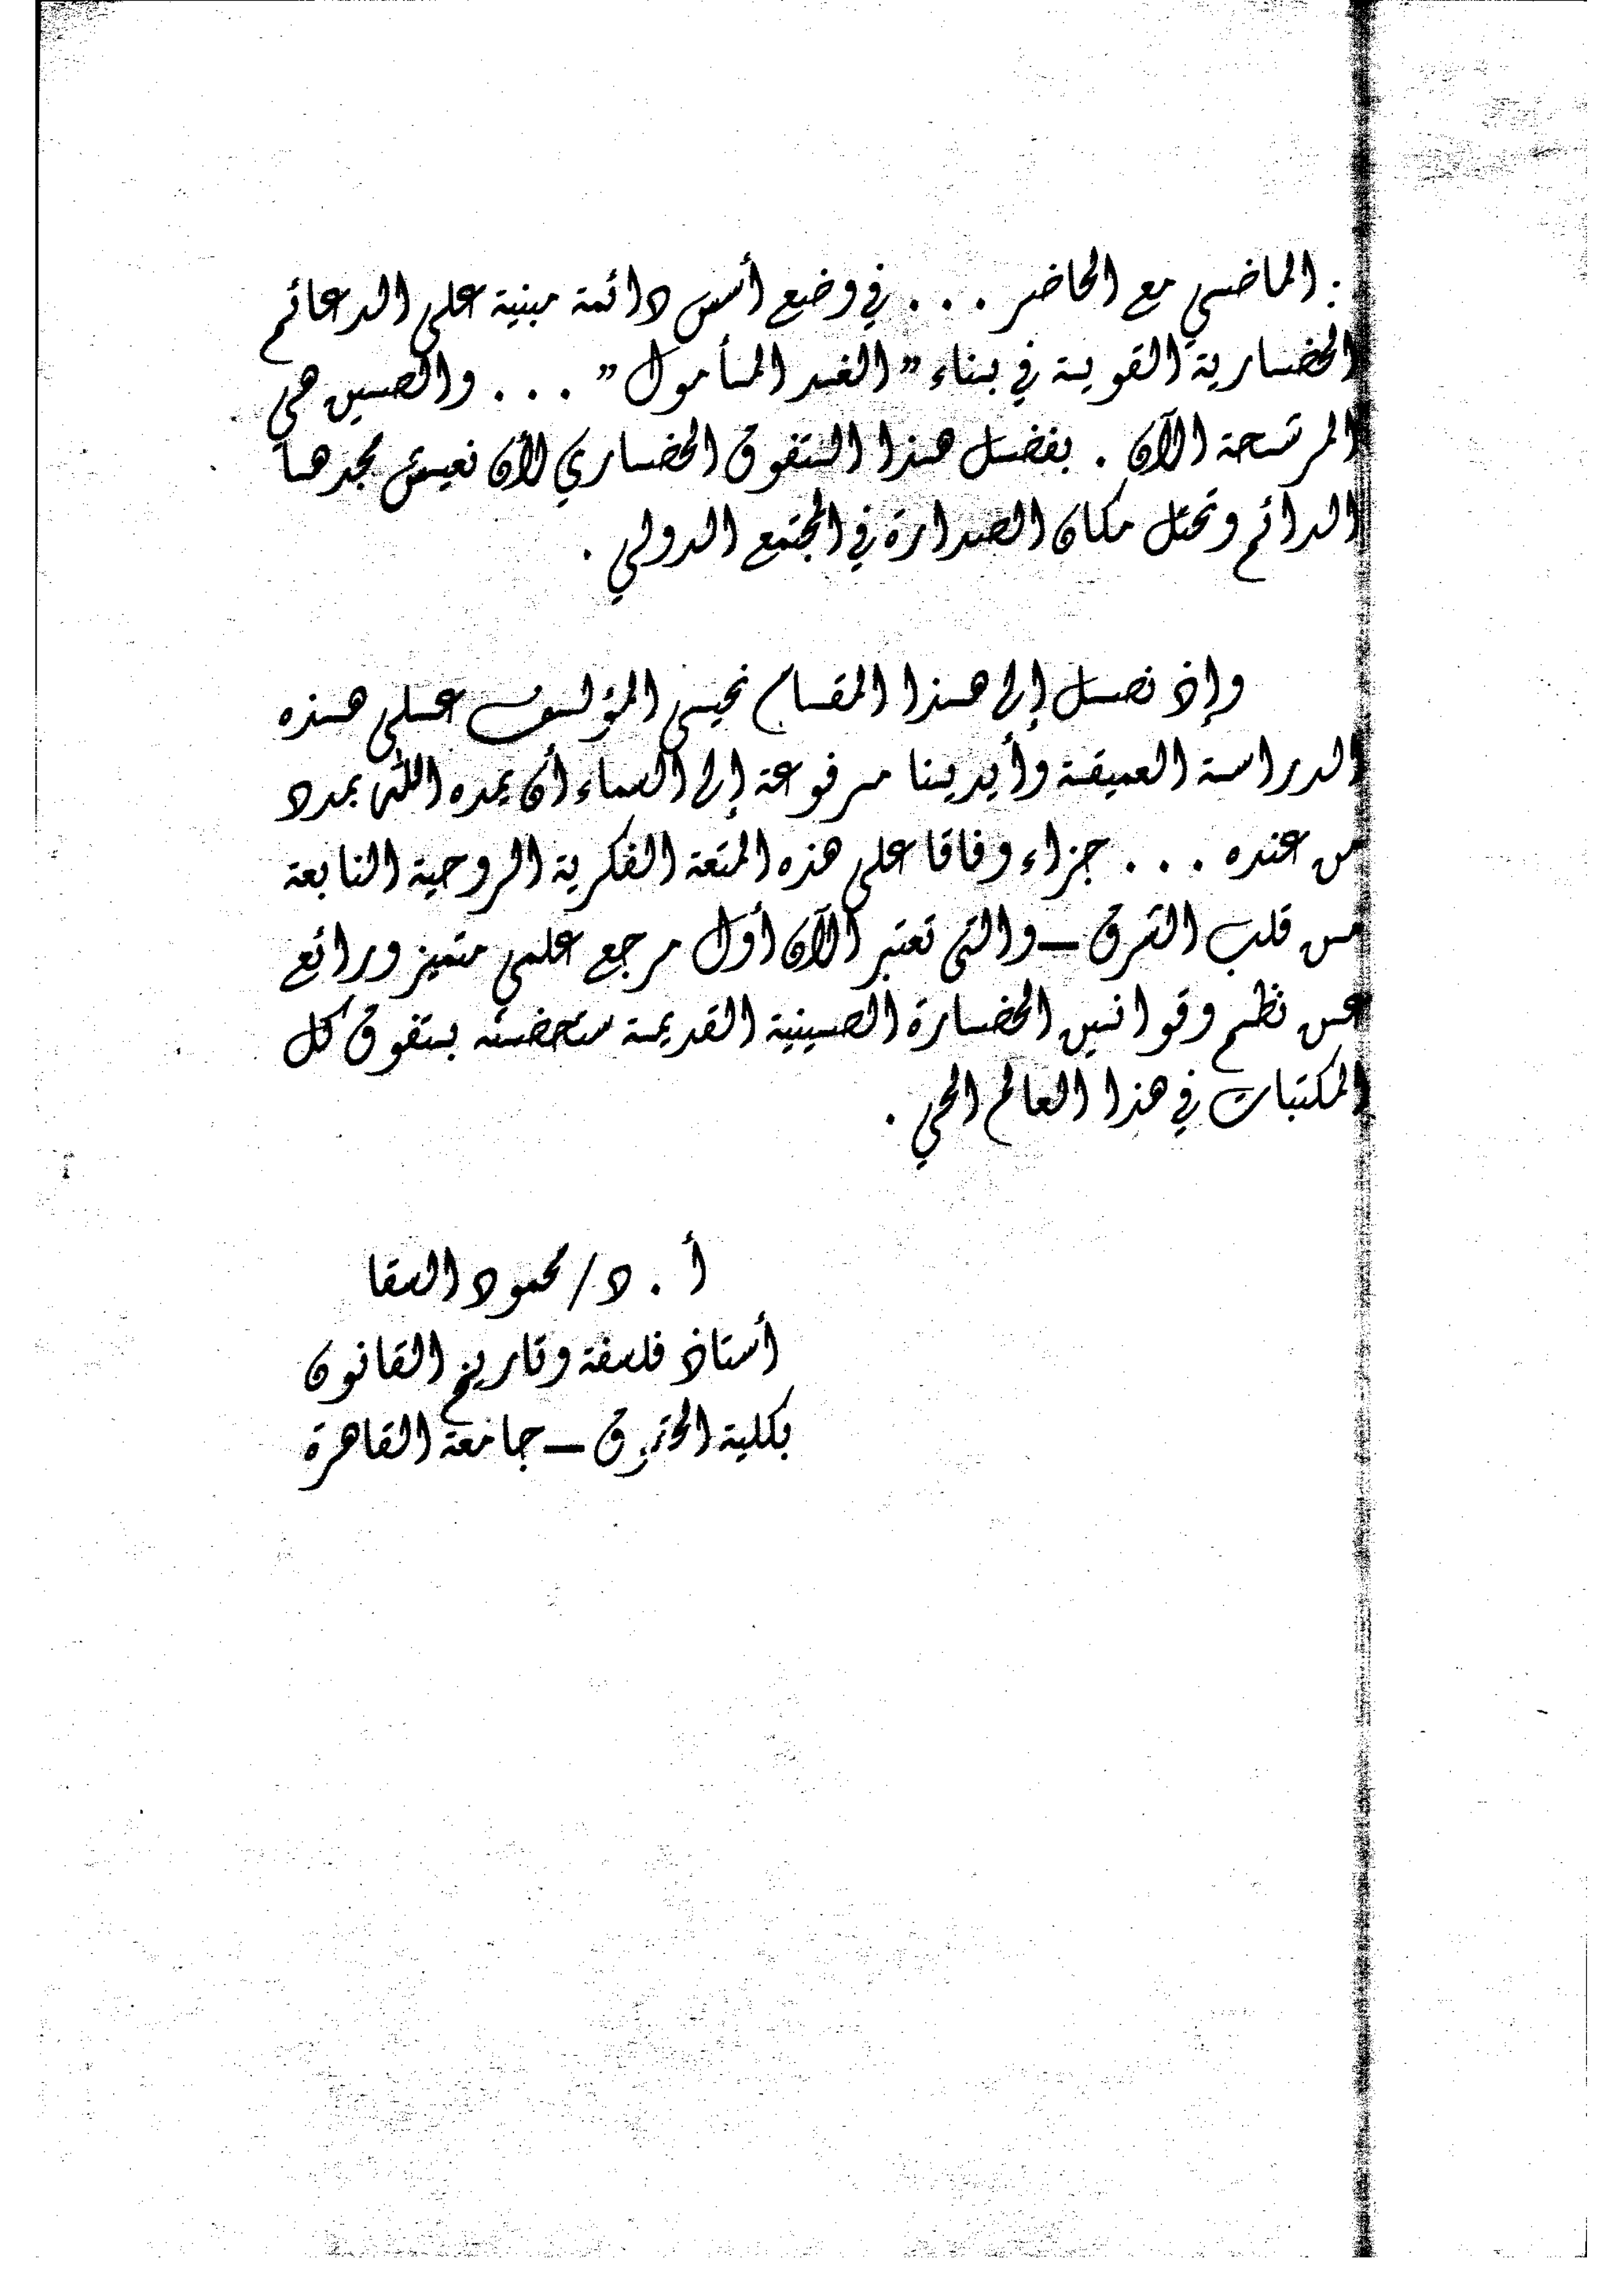 : الماضي مع الحاضر . . . في وضع أسس دائمة مبنية على الدعائم
الحضارية القوية في بناء " الغد المأمول " . . . والصين هي
المرشحة الآن . بفضل هذا التفوق الحضاري لأن نعيش مجدها
الدائم وتحتل مكان الصدارة في المجتمع الدولي .
وإذ نصل إلى هذا المقام نحيى المؤلف على هذه
الدراسة العميقة وأيدينا مرفوعة إلى السماء أن يمده الله بمدد
من عنده . . . جزاء وفاقا على هذه المتعة الفكرية الروحية النابعة
من قلب الشرق – والتى تعتبر الآن أول مرجع علمي متميز ورائع
عن نظم وقوانين الحضارة الصينية القديمة ستحضنه بتفوق كل
المكتبات في هذا العالم الحي .
أ . د/ محمود السقا
أستاذ فلسفة وتاريخ القانون
بكلية الحقوق – جامعة القاهرة